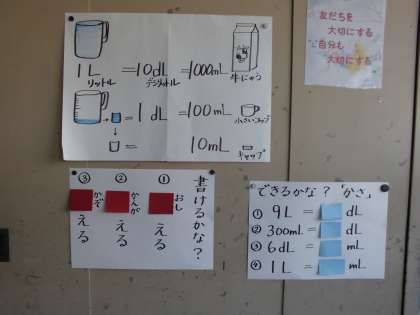 1L = 10dL = 1000mL
リットル デシリットル 牛にゅう
= 1dL = 100mL
小さいコップ
= 10mL
キャップ
友だちを
大切にする
自分も
大切にする
書けるかな?
① おし える
② かんが える
③ かぞ える
できるかな?「かさ」
① 9L = dL
② 300mL = dL
③ 6dL = mL
④ 1L = mL